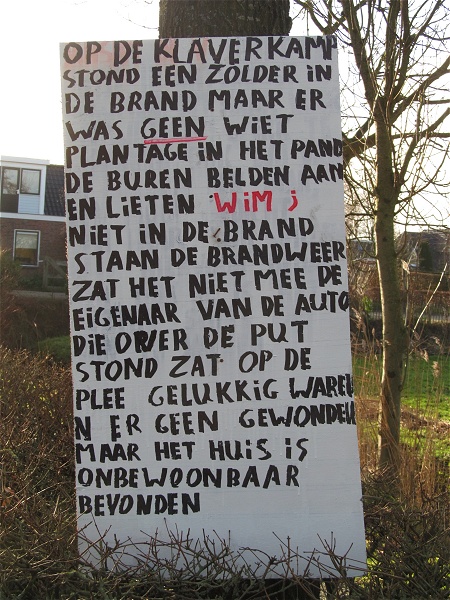 OP DE KLAVERKAMP
STOND EEN ZOLDER IN
DE BRAND MAAR ER
WAS GEEN WIET
PLANTAGE IN HET PAND
DE BUREN BELDEN AAN
EN LIETEN WIM ;
NIET IN DE BRAND
STAAN DE BRANDWEER
ZAT HET NIET MEE DE
EIGENAAR VAN DE AUTO
DIE OVER DE PUT
STOND ZAT OP DE
PLEE GELUKKIG WARE
N ER GEEN GEWONDEN
MAAR HET HUIS IS
ONBEWOONBAAR
BEVONDEN